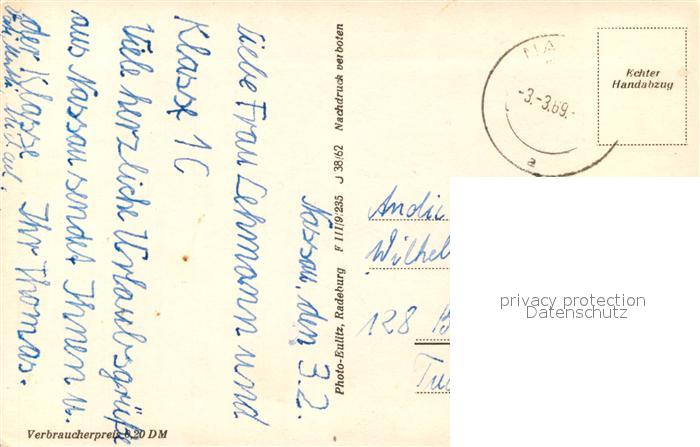 Nassau, den 3.2.
Liebe Frau Lehmann und
Klasse 1C
Viele herzliche Urlaubsgrüße
aus Nassau sendet Ihnen u.
der Klasse Ihr Thomas.
Photo-Eulitz, Radeburg F III/9/235 J 38/62 Nachdruck verboten
Verbraucherpreis 0,20 DM
NA
-3.-3.69.-
a
Echter
Handabzug
Wilhel
128 B
privacy protection
Datenschutz